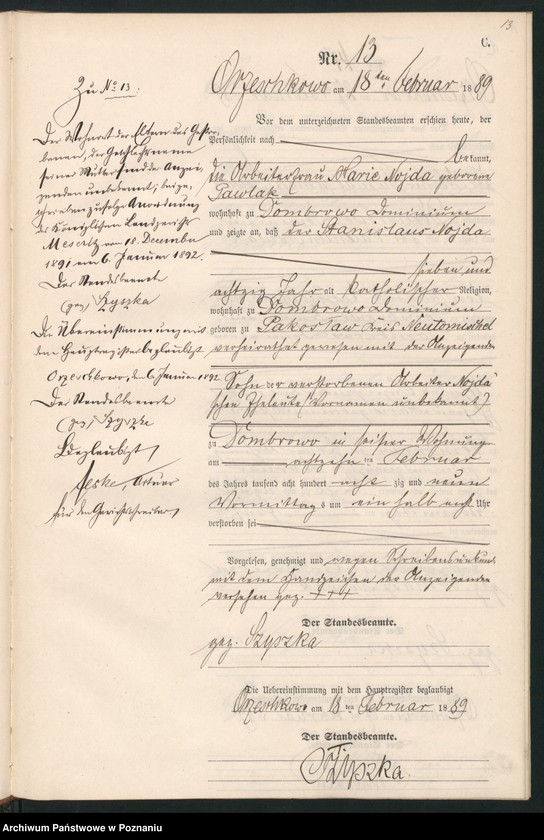 13
C.
Nr. 13
Orzeschkowo am 18ten Februar 1889
Vor dem unterzeichneten Standesbeamten erschien heute, der
Persönlichkeit nach
bekannt,
die Arbeiterfrau Marie Nojda geborene
Pawlak
wohnhaft zu Dombrowo Dominium
und zeigte an, daß der Stanislaus Nojda
sieben und
achtzig Jahr alt katholischer Religion,
wohnhaft zu Dombrowo Dominium
geboren zu Pakoslaw Kreis Neutomischel
verheirathet gewesen mit der Anzeigenden
Sohn der verstorbenen Arbeiter Nojda
schen Eheleute (Vornamen unbekannt)
zu Dombrowo in seiner Wohnung
am achtzehnten Februar
des Jahres tausend acht hundert achtzig und neun
Vormittags um ein halb acht Uhr
verstorben sei
Vorgelesen, genehmigt und wegen Schreibensunkunde
mit dem Handzeichen der Anzeigenden
versehen gez. + + +
Der Standesbeamte.
gez. Szyszka
Die Uebereinstimmung mit dem Hauptregister beglaubigt
Orzeschkowo am 18ten Februar 1889
Der Standesbeamte.
Szyszka
Zu No 13:
Der Wohnort der Eltern des Gestor-
benen, der Geschlechtsname
seiner Mutter sind der Anzei-
genden unbekannt; beige-
schrieben zufolge Anordnung
des Königlichen Landgerichts
Meseritz vom 18. Dezember
1891 am 6. Januar 1892.
Der Standesbeamte
(gez) Szyszka
Die Übereinstimmung mit
dem Hauptregister beglaubigt
Orzeschkowo, den 6. Januar 1892
Der Standesbeamte
(gez) Szyszka
Beglaubigt
Jeske, Aktuar
für den Gerichtsschreiber
Archiwum Państwowe w Poznaniu